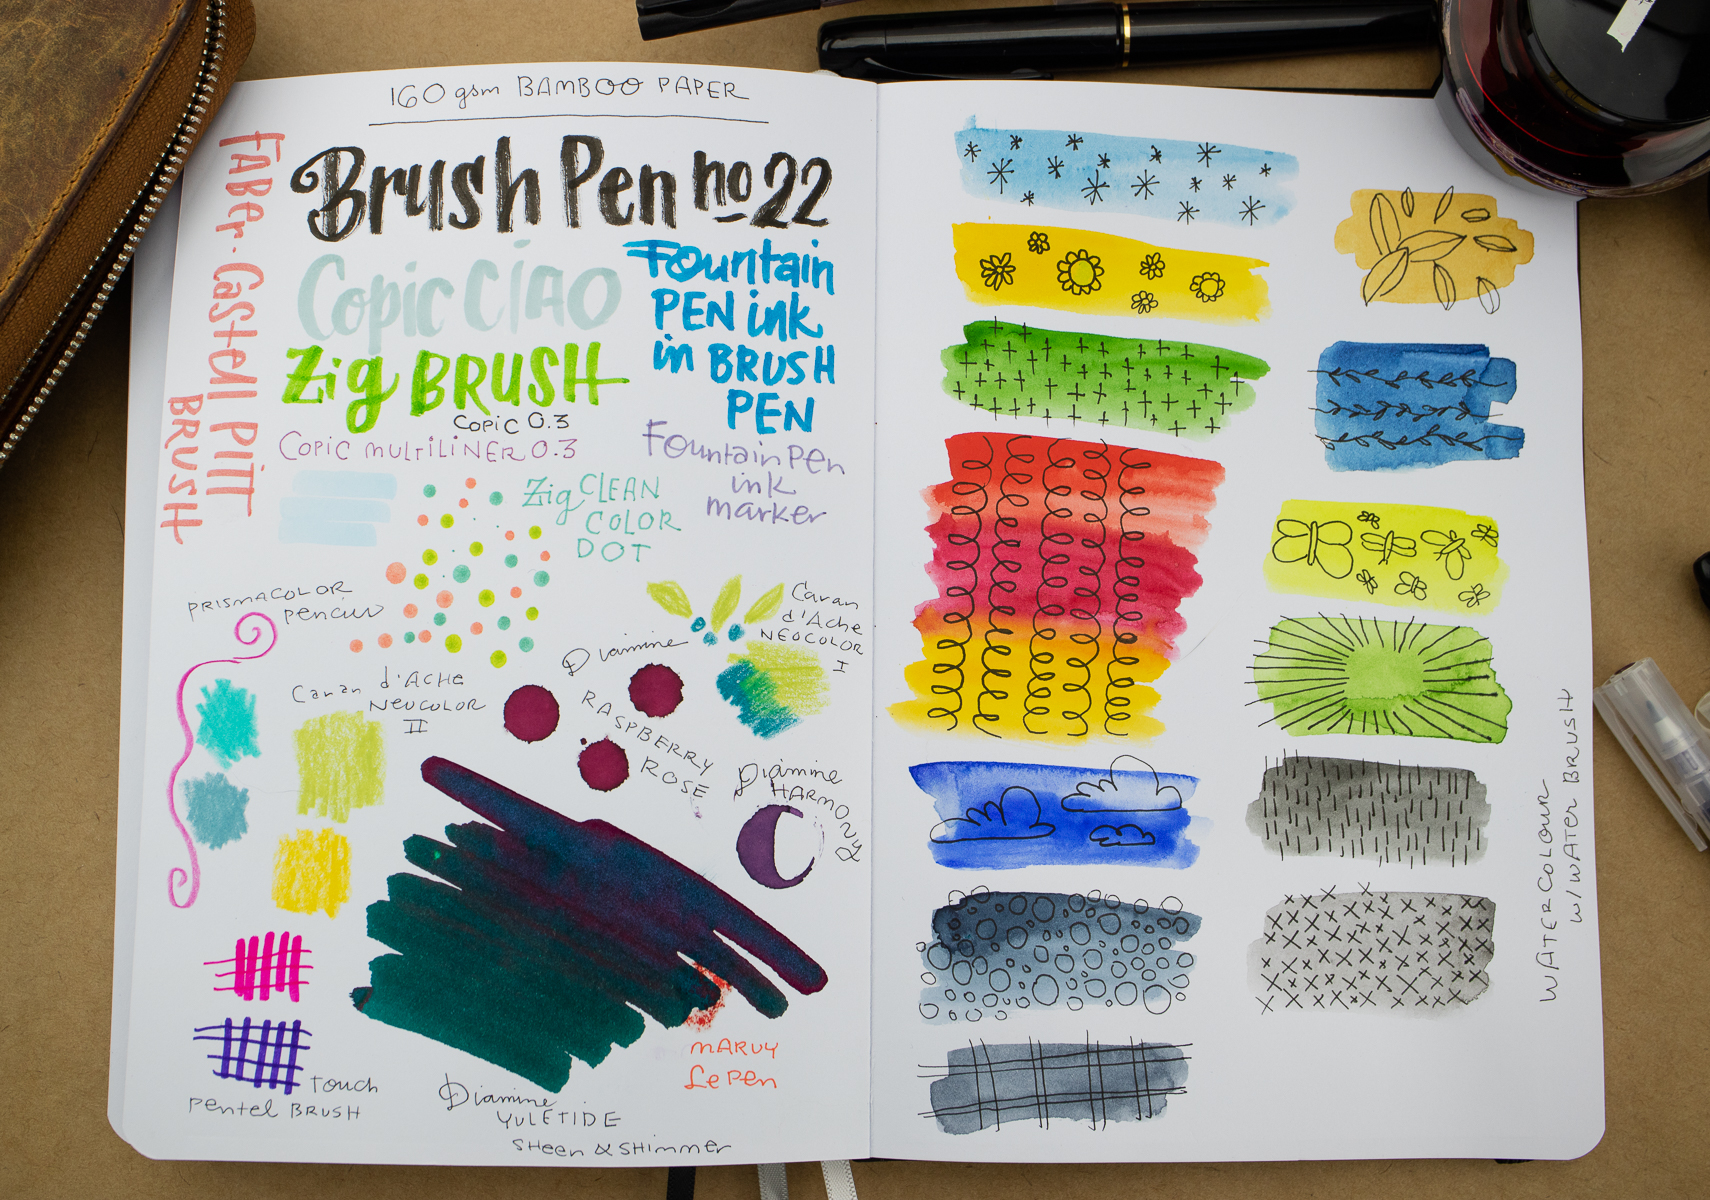 160 gsm BAMBOO PAPER
Brush Pen no 22
FABer-CasteLL PITT
BRUSH
Copic CIAO
Fountain
PEN ink
in BRUSH
PEN
Zig BRUSH
Copic 0.3
Copic multiLINER 0.3
Fountain Pen
ink
marker
Zig CLEAN
COLOR
DOT
PRISMACOLOR
pencil
Caran d'Ache
NEOCOLOR
I
Diamine
RASPBERRY
ROSE
Caran d'Ache
NEOCOLOR
II
Diamine
HARMONY
MARVY
Le Pen
Touch
Pentel BRUSH
Diamine
YULETIDE
SHeen & SHimmer
WATERCOLOUR
W/ WATER BRUSH